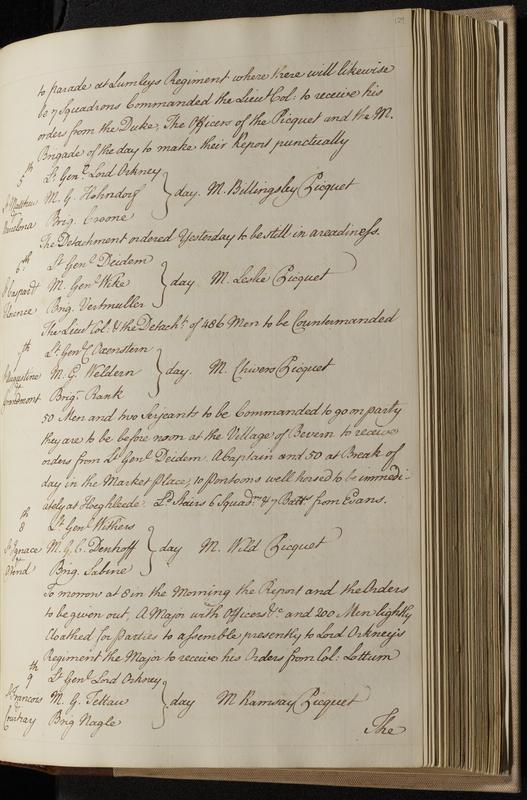 129
to parade at Lumleys Regiment where there will likewise
be 7 Squadrons Commanded the Lieut Col: to receive his
orders from the Duke, The Officers of the Picquet and the M.
Brigade of the day to make their Report punctually
5th Lt Genl. Lord Orkney
St Matthew M. G. Hohndorf } day. M. Billingsley Picquet
Barcelona Brig. Croone
The Detachment ordered Yesterday to be still in a readiness.
6th Lt Genl Deidem
M. Genl Wike } day M. Leslie Picquet
Florence Brig. Vertmuller
The Lieut Col. & the Detacht. of 486 Men to be Countermanded
7th Lt Genl Oxenstern
St Augustine M. G. Weldern } day. M. Chivers Picquet
Brigr. Rank
50 Men and two Serjeants to be Commanded to go on party
they are to be before noon at the Village of Bevern to receive
orders from Lt Genl. Deidem. A Captain and 50 at Break of
day in the Market place, 10 persons well horsed to be immedi-
ately at Hoeghleede. Ld. Stairs 6 Squadns & 7 Batts from Evans.
8th Lt Genl Withers
St Ignace M. G. C. Denhoff } day M. Wild Picquet
Brig. Sabine
To morrow at 8 in the Morning the Report and the Orders
to be given out, A Major with Officers &c and 200 Men lightly
Cloathed for Parties to assemble presently to Lord Orkney's
Regiment the Major to receive his Orders from Col. Lottum
9th Lt Genl. Lord Orkney
St Francois M. G. Tettau } day M Ramsay Picquet
Courtray Brig Nagle
The